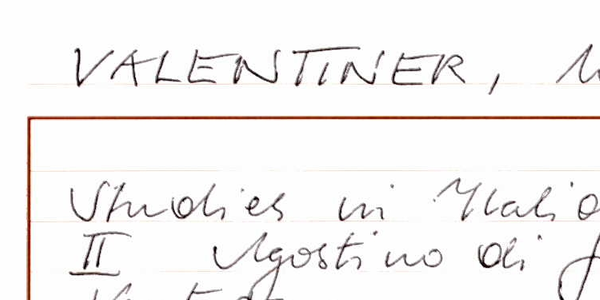 VALENTINER,
Studies in
II Agostino di